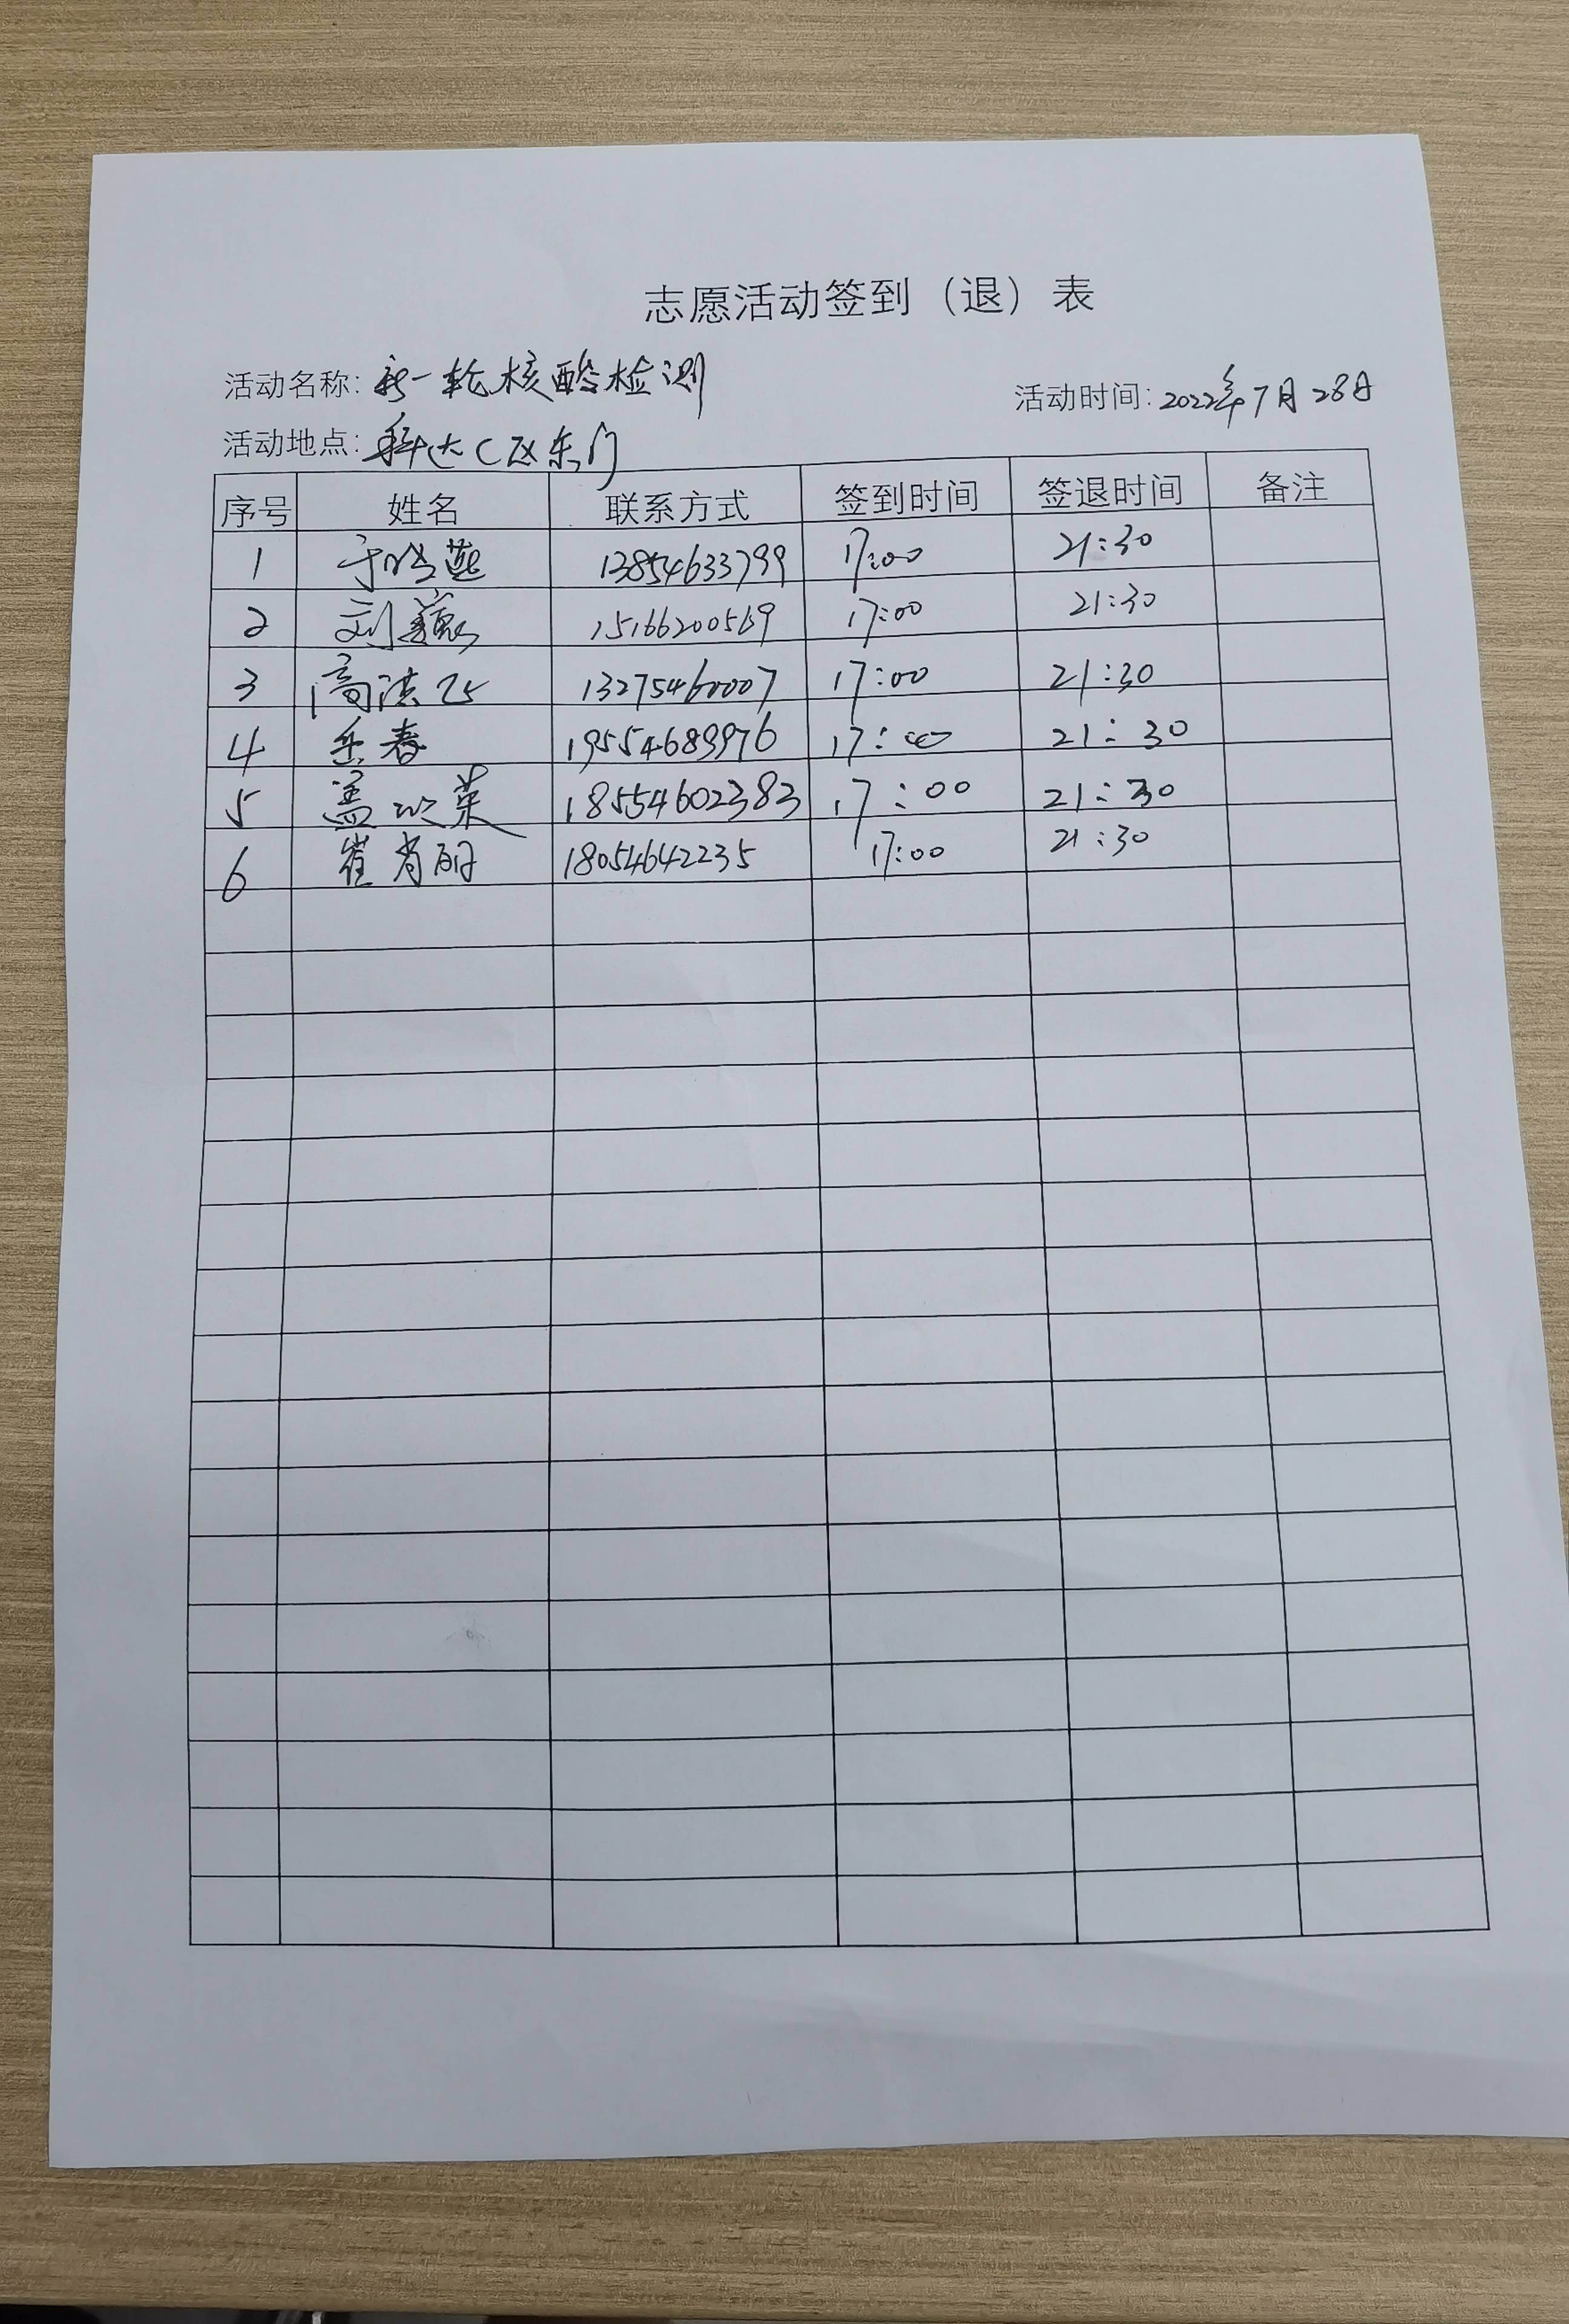 志愿活动签到（退）表
活动名称: 新一轮核酸检测 活动时间: 2022年7月28日
活动地点: 科达C区东门
序号 姓名 联系方式 签到时间 签退时间 备注
1 于晓燕 13854633799 17:00 21:30
2 刘 15166200569 17:00 21:30
3 高洪 13275460007 17:00 21:30
4 岳春 19554689976 17:00 21:30
5 盖 英 18554602383 17:00 21:30
6 崔肖丽 18054642235 17:00 21:30